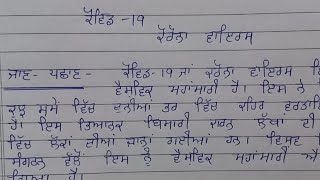 ਕੋਵਿਡ -19
ਕੋਰੋਨਾ ਵਾਇਰਸ
ਜਾਣ- ਪਛਾਣ- ਕੋਵਿਡ-19 ਜਾਂ ਕਰੋਨਾ ਵਾਇਰਸ
ਵੈਸ਼ਵਿਕ ਮਹਾਂਮਾਰੀ ਹੈ। ਇਸ ਨੇ
ਕੁਝ ਸਮੇਂ ਵਿੱਚ ਦੁਨੀਆਂ ਭਰ ਵਿੱਚ ਕਹਿਰ
ਹੈ। ਇਸ ਭਿਆਨਕ ਬਿਮਾਰੀ ਕਾਰਨ ਲੱਖਾਂ ਦੀ
ਵਿੱਚ ਲੋਕਾਂ ਦੀਆਂ ਜਾਨਾਂ ਗਈਆਂ ਹਨ। ਵਿਸ਼ਵ
ਸੰਗਠਨ ਵੱਲੋਂ ਇਸ ਨੂੰ ਵੈਸ਼ਵਿਕ ਮਹਾਂਮਾਰੀ
ਹੈ।